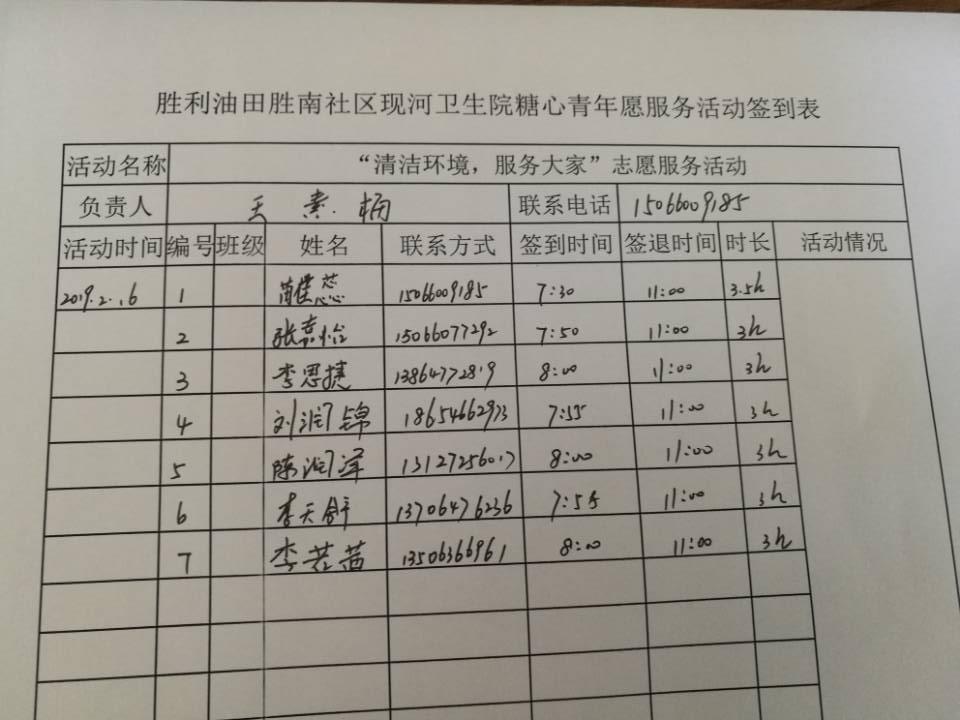 胜利油田胜南社区现河卫生院糖心青年愿服务活动签到表
活动名称 “清洁环境，服务大家”志愿服务活动
负责人 王素 联系电话 15066009185
活动时间 编号 班级 姓名 联系方式 签到时间 签退时间 时长 活动情况
2019.2.16 1 15066009185 7:30 11:00 3.5h
2 张嘉怡 15066077292 7:50 11:00 3h
3 李思捷 13864772819 8:00 11:00 3h
4 刘润锦 18654662933 7:55 11:00 3h
5 陈润泽 13127256017 8:00 11:00 3h
6 李天舒 13706476236 7:55 11:00 3h
7 李芸茜 13506366961 8:00 11:00 3h